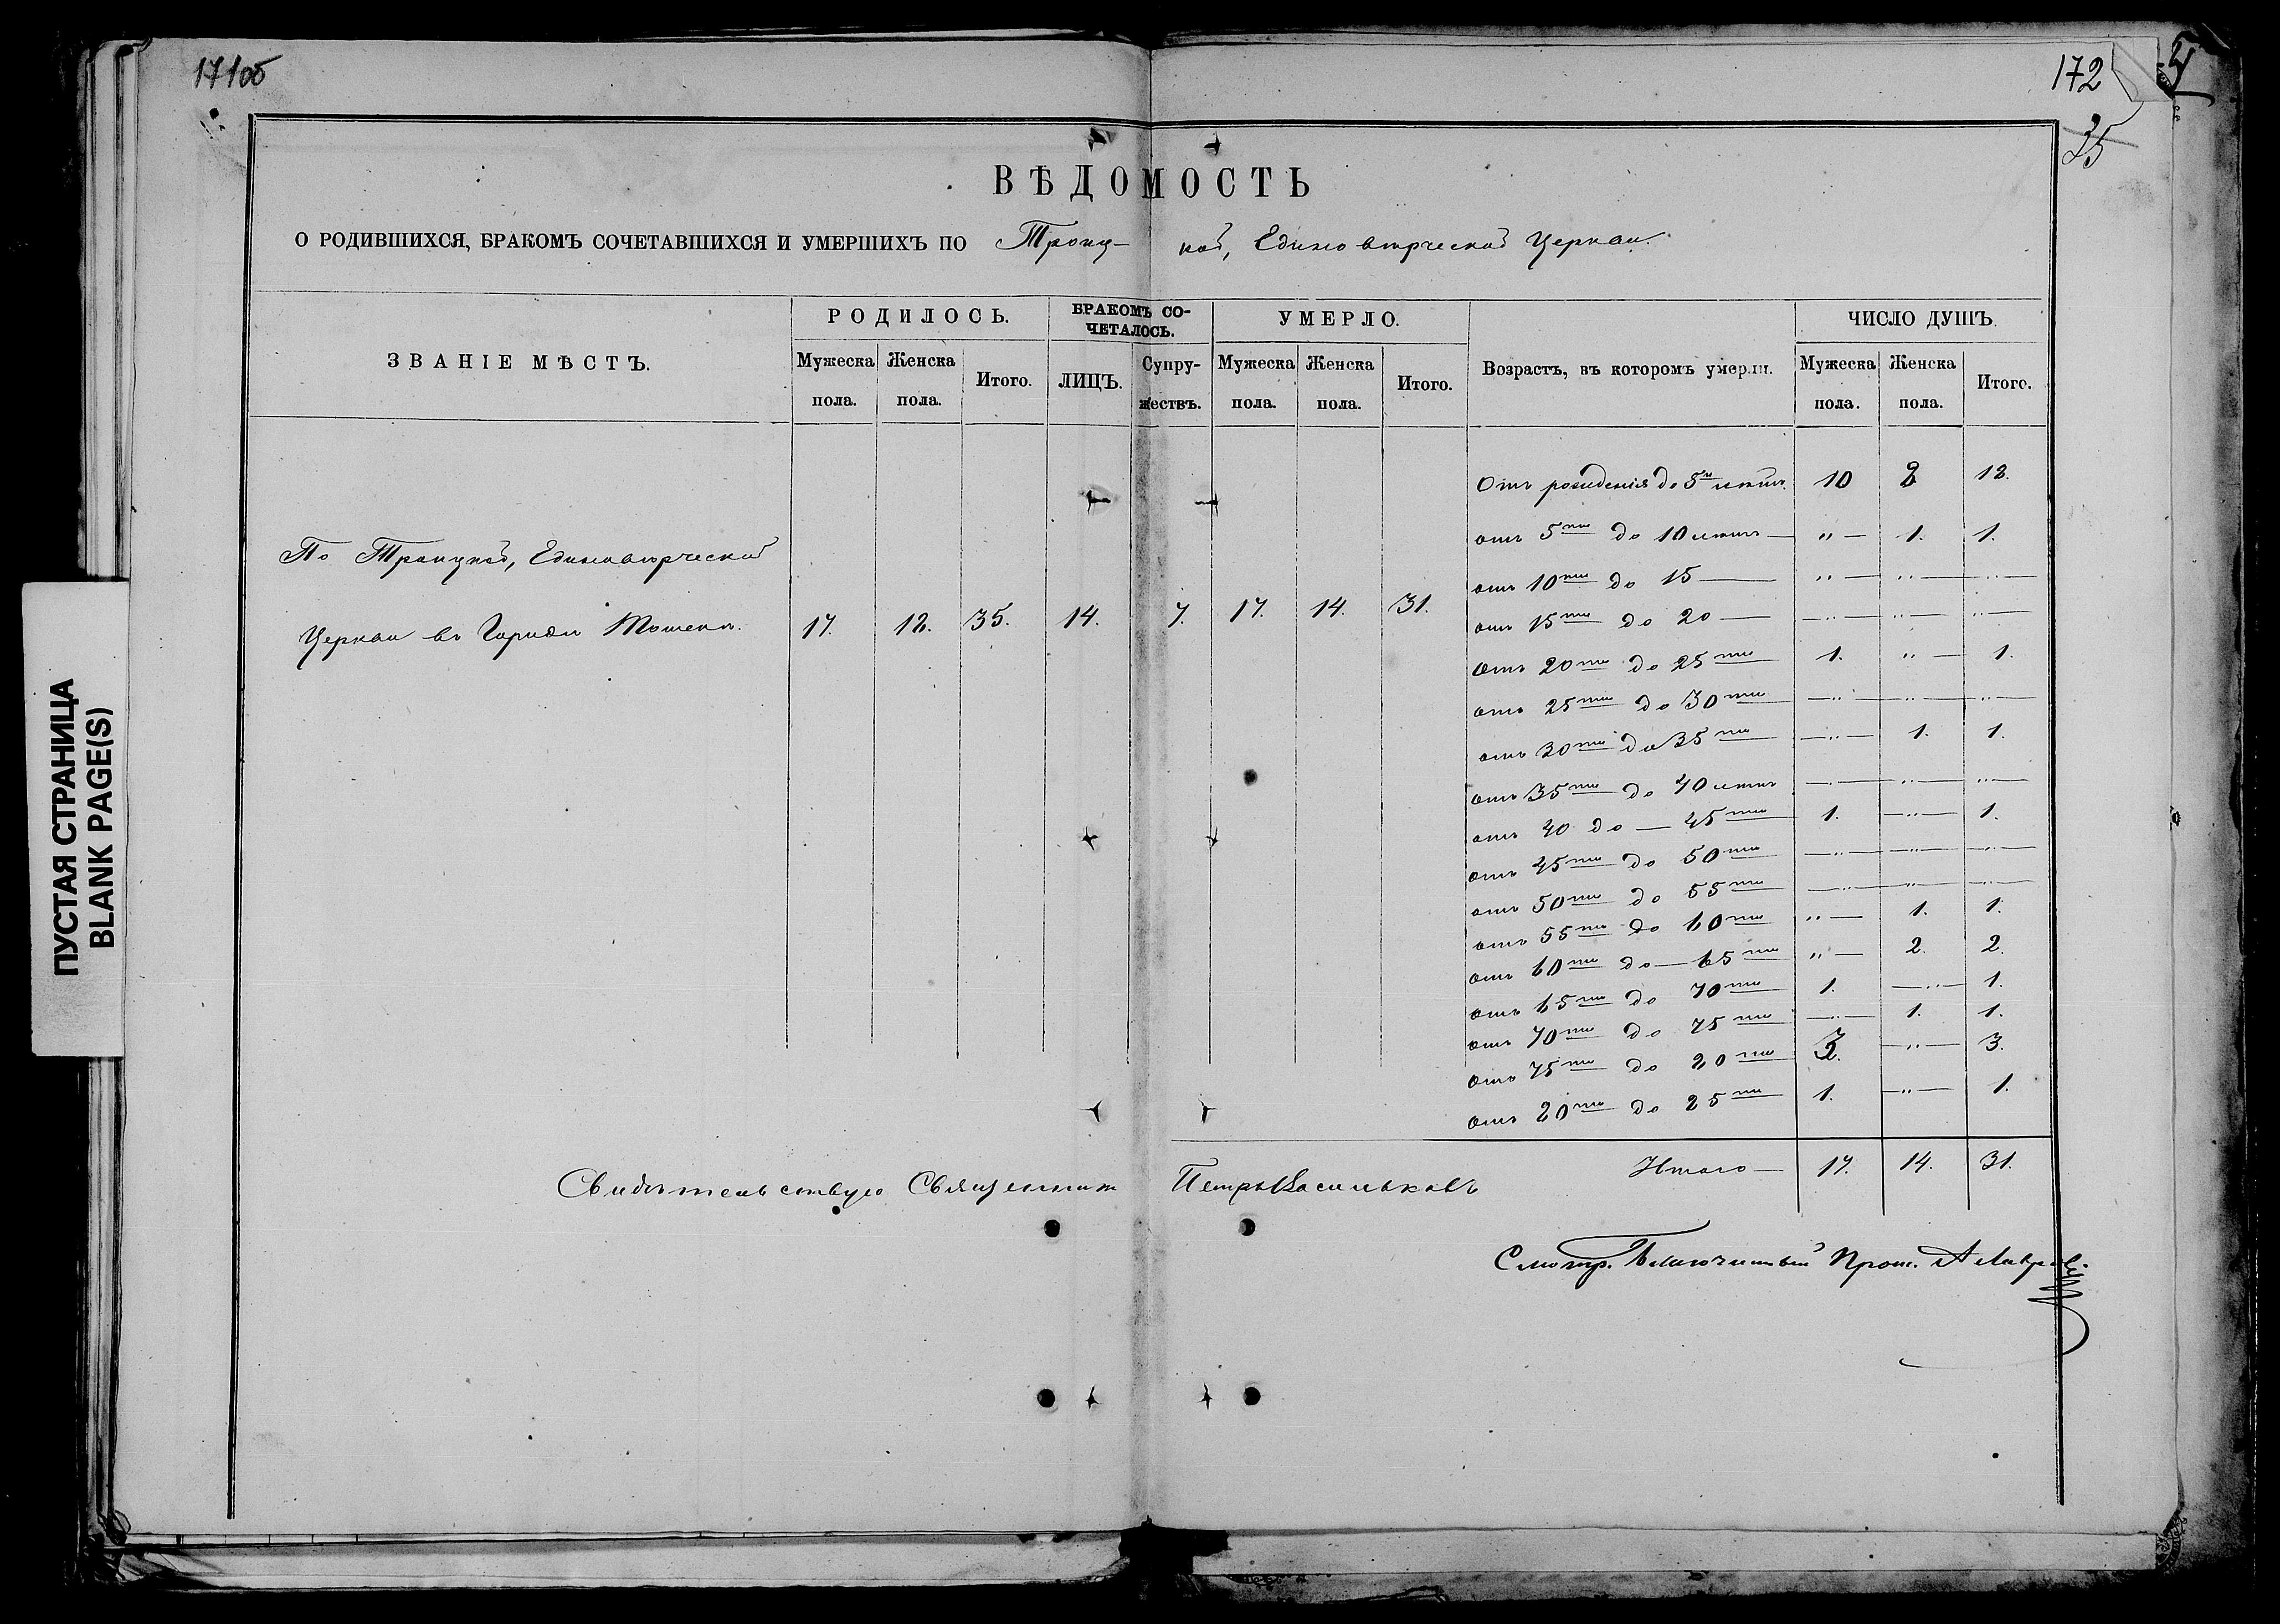 171об
172
35
ВѢДОМОСТЬ
О РОДИВШИХСЯ, БРАКОМЪ СОЧЕТАВШИХСЯ И УМЕРШИХЪ ПО Троиц-кой, Единовѣрческой Церкви.
ЗВАНІЕ МѢСТЪ.
РОДИЛОСЬ.
Мужеска пола.
Женска пола.
Итого.
БРАКОМЪ СО-
ЧЕТАЛОСЬ.
ЛИЦЪ.
Супру-
жествъ.
УМЕРЛО.
Мужеска пола.
Женска пола.
Итого.
Возрастъ, въ которомъ умерли.
ЧИСЛО ДУШЪ.
Мужеска пола.
Женска пола.
Итого.
По Троицкой, Единовѣрческой
Церкви въ Городѣ 17. 18. 35. 14. 7. 17. 14. 31.
Отъ рожденія до 5ти лѣтъ. 10 8 18.
отъ 5ти до 10 лѣтъ — " — 1. 1.
отъ 10ти до 15 — " — " — " —
отъ 15ти до 20 — " — " — " —
отъ 20ти до 25ти 1. " — 1.
отъ 25ти до 30ти — " — " — " —
отъ 30ти до 35ти — " — 1. 1.
отъ 35ти до 40 лѣтъ — " — " — " —
отъ 40 до — 45ти 1. — " — 1.
отъ 45ти до 50ти — " — " — " —
отъ 50ти до 55ти — " — " — " —
отъ 55ти до 60ти " — 1. 1.
отъ 60ти до — 65ти " — 2. 2.
отъ 65ти до 70ти 1. — " — 1.
отъ 70ти до 75ти — " — 1. 1.
отъ 75ти до 80ти 3. — " — 3.
отъ 80ти до 85ти 1. — " — 1.
Итого — 17. 14. 31.
Свидѣтельствую Священникъ Петръ Васильковъ
Смотр. Благочинный Прот. А Лавровъ
ПУСТАЯ СТРАНИЦА
BLANK PAGE(S)